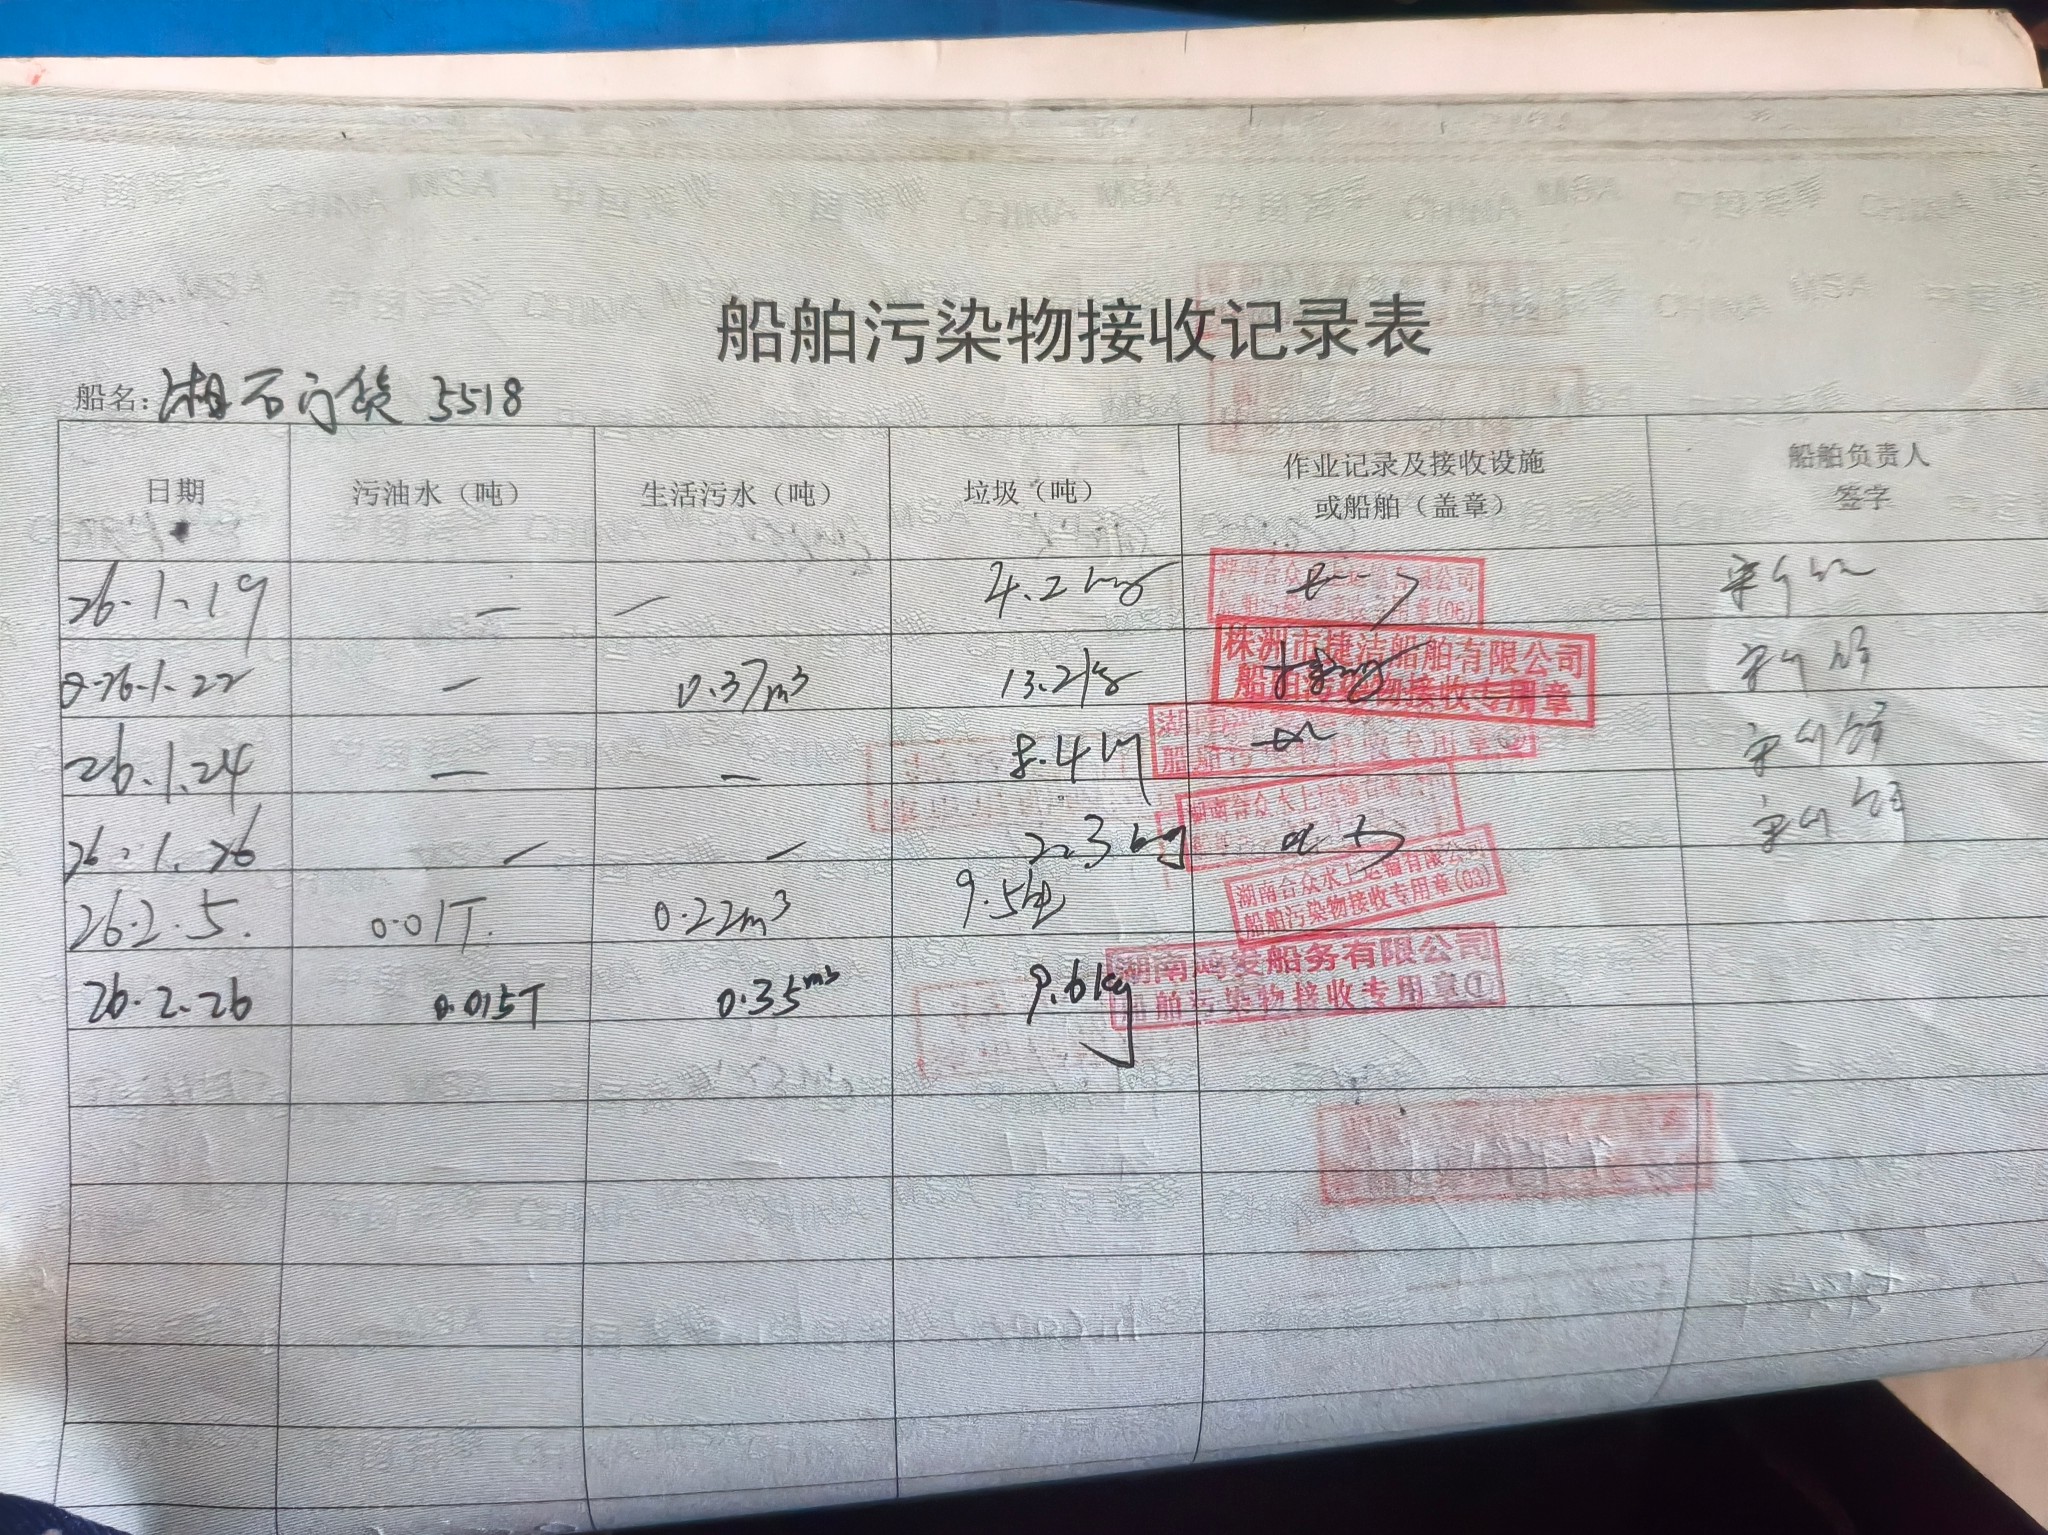 船舶污染物接收记录表
船名：湘石门货 3518
日期 污油水（吨） 生活污水（吨） 垃圾（吨） 作业记录及接收设施或船舶（盖章） 船舶负责人签字
26.1.19 — — 4.2kg 湖南合众水上运输有限公司 船舶污染物接收专用章(06)
26.1.22 — 0.37m³ 13.2kg 株洲市捷洁船舶有限公司 船舶污染物接收专用章
26.1.24 — — 8.4kg 船舶污染物接收专用章②
26.1.26 — — 22.3kg 湖南合众水上运输有限公司
26.2.5. 0.01T. 0.22m³ 9.5kg 湖南合众水上运输有限公司 船舶污染物接收专用章(03)
26.2.26 0.015T 0.35m³ 9.6kg 湖南鸣发船务有限公司 船舶污染物接收专用章①